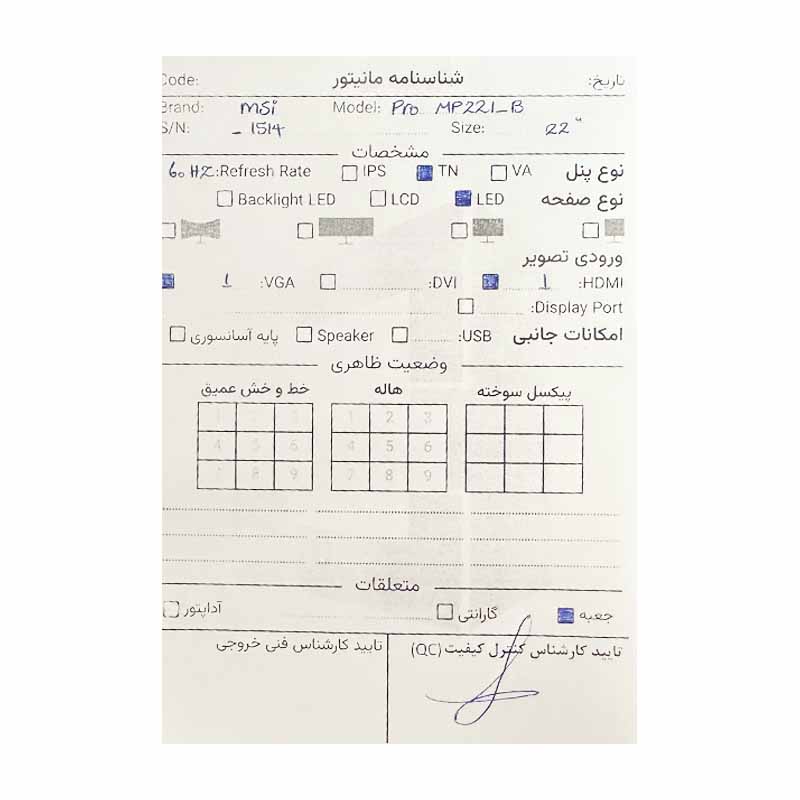 Code: شناسنامه مانیتور تاریخ:
Brand: msi Model: Pro MP221_B
S/N: _ 1514 Size: 22"
مشخصات
نوع پنل VA TN IPS Refresh Rate: 60 HZ
نوع صفحه LED LCD Backlight LED
ورودی تصویر
HDMI: 1 DVI: VGA: 1
Display Port:
امکانات جانبی USB: Speaker پایه آسانسوری
وضعیت ظاهری
پیکسل سوخته هاله خط و خش عمیق
1 2 3 1 2 3
4 5 6 4 5 6
7 8 9 7 8 9
متعلقات
جعبه گارانتی آداپتور
تایید کارشناس کنترل کیفیت (QC) تایید کارشناس فنی خروجی